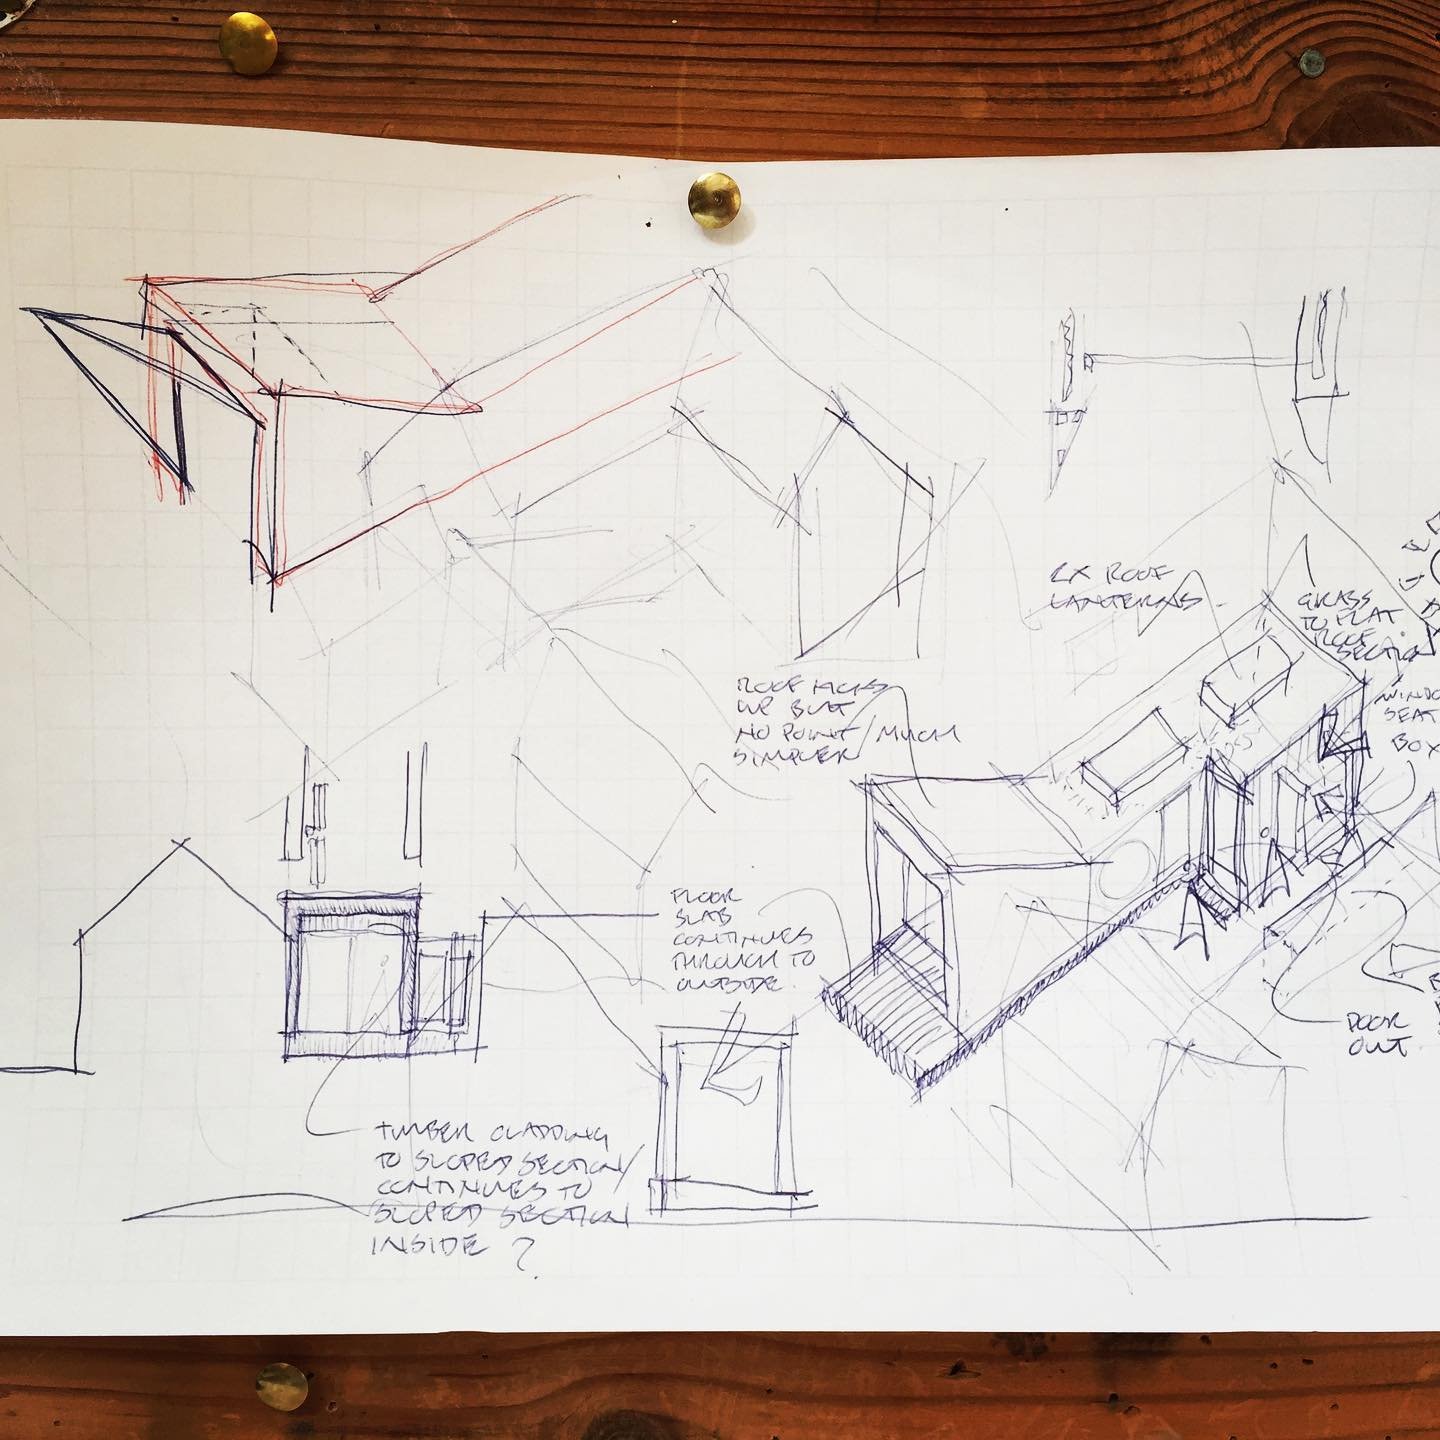 2X ROOF
LANTERNS
GRASS
TO FLAT
ROOF
SECTION
WINDO
SEAT
BOX
ROOF KICKS
UP BUT
NO POINT / MUCH
SIMPLER
FLOOR
SLAB
CONTINUES
THROUGH TO
OUTSIDE
DOOR
OUT
TIMBER CLADDING
TO SLOPED SECTION/
CONTINUES TO
SLOPED SECTION
INSIDE ?